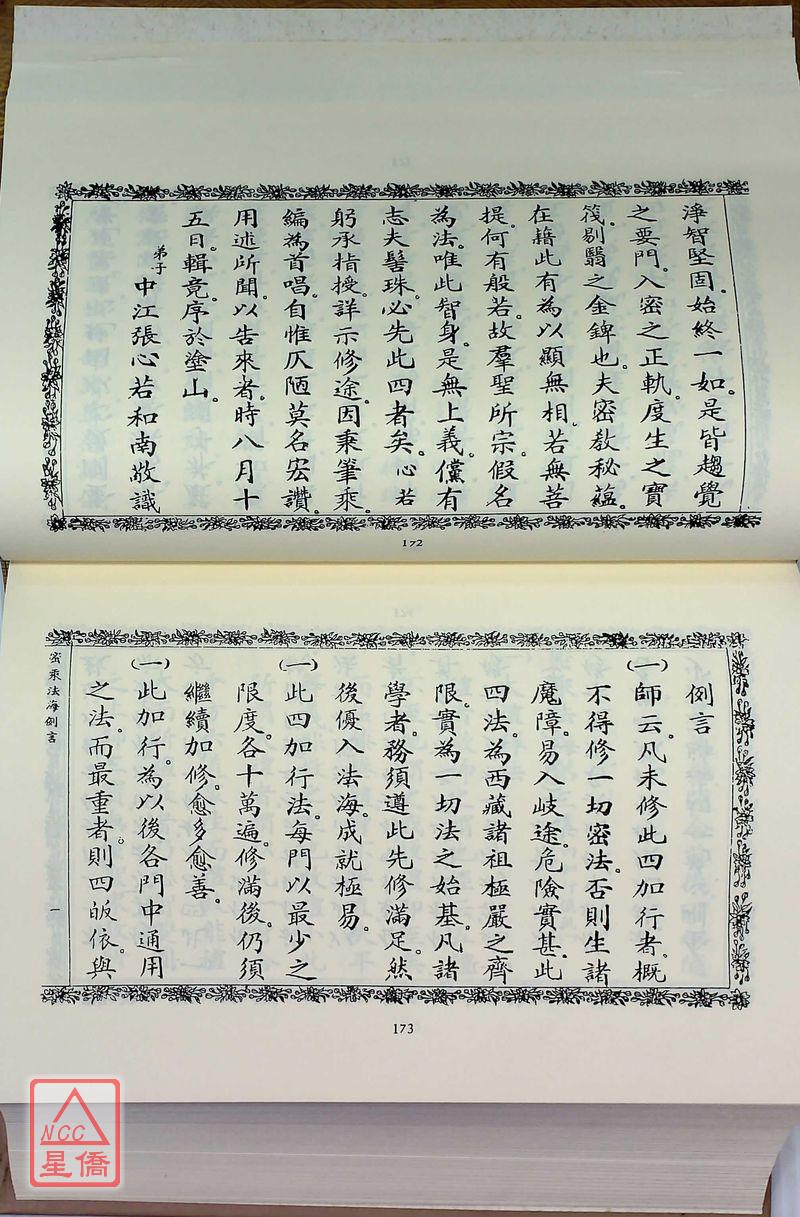 淨智堅固。始終一如。是皆趨覺
之要門。入密之正軌。度生之寶
筏。剔翳之金錍也。夫密教秘蘊。
在藉此有為以顯無相。若無菩
提。何有般若。故羣聖所宗。假名
為法。唯此智身。是無上義。儻有
志夫髻珠。必先此四者矣。心若
躬承指授。詳示修途。因秉筆乘。
編為首唱。自惟仄陋。莫名宏讚。
用述所聞。以告來者。時八月十
五日。輯竟。序於塗山。
弟子中江張心若和南敬識
172
例言
(一)師云。凡未修此四加行者。概
不得修一切密法。否則生諸
魔障。易入岐途。危險實甚。此
四法。為西藏諸祖極嚴之齊
限。實為一切法之始基。凡諸
學者。務須遵此先修滿足。然
後優入法海。成就極易。
(一)此四加行法。每門以最少之
限度。各十萬遍。修滿後。仍須
繼續加修。愈多愈善。
(一)此加行。為以後各門中通用
之法。而最重者。則四皈依。與
密乘法海例言
一
173
NCC
星僑